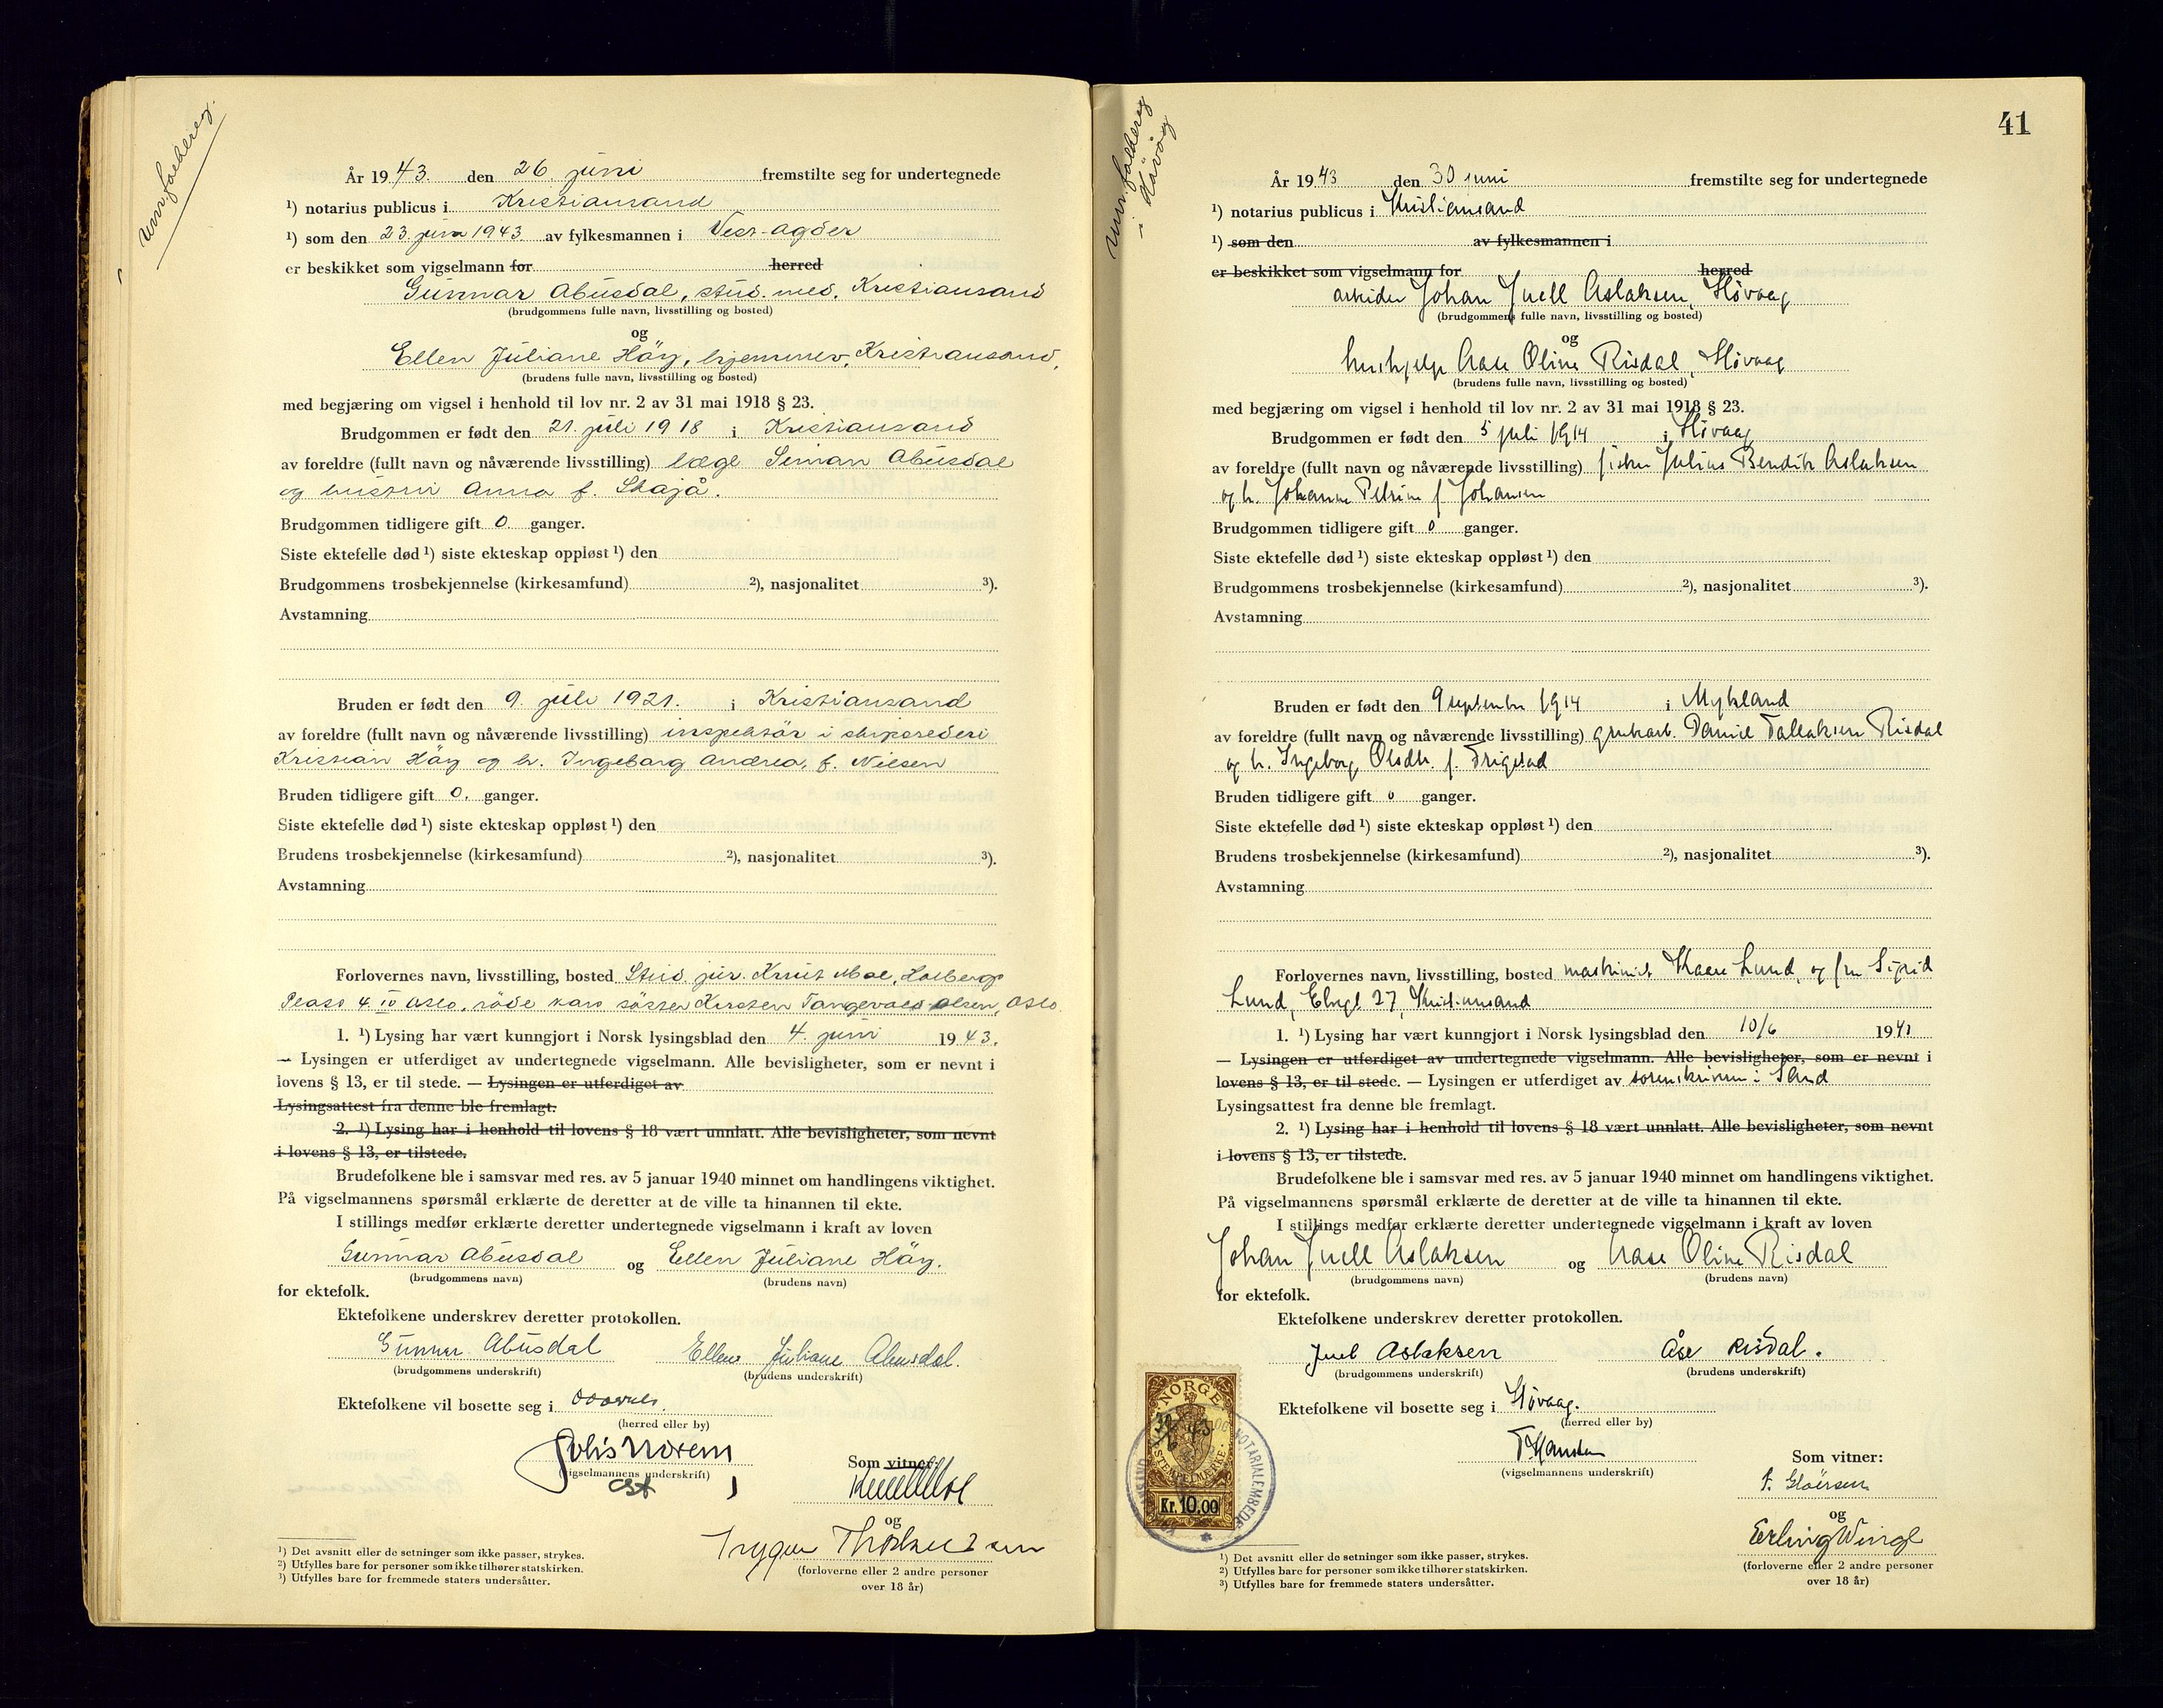 Um. folkereg.
År 1943. den 26. juni fremstilte seg for undertegnede
¹) notarius publicus i Kristiansand
¹) som den 23. juni 1943 av fylkesmannen i Vest-Agder
er beskikket som vigselmann for herred
Gunnar Abusdal, stud. med. Kristiansand
(brudgommens fulle navn, livsstilling og bosted)
og
Ellen Juliane Høy, hjemmev. Kristiansand,
(brudens fulle navn, livsstilling og bosted)
med begjæring om vigsel i henhold til lov nr. 2 av 31 mai 1918 § 23.
Brudgommen er født den 21. juli 1918 i Kristiansand
av foreldre (fullt navn og nåværende livsstilling) læge Simon Abusdal
og hustru Anna f. Skajå.
Brudgommen tidligere gift 0 ganger.
Siste ektefelle død ¹) siste ekteskap oppløst ¹) den
Brudgommens trosbekjennelse (kirkesamfund) ²), nasjonalitet ³).
Avstamning
Bruden er født den 9. juli 1921. i Kristiansand
av foreldre (fullt navn og nåværende livsstilling) inspektør i skipsrederi
Kristian Høy og h. Ingeborg Andrea, f. Nilsen
Bruden tidligere gift 0. ganger.
Siste ektefelle død ¹) siste ekteskap oppløst ¹) den
Brudens trosbekjennelse (kirkesamfund) ²), nasjonalitet ³).
Avstamning
Forlovernes navn, livsstilling, bosted Stud. jur. Knut Moe, Holbergs
Plass 4 IV Oslo, røde kors søster Kirsten Tangevald-Olsen, Oslo
1. ¹) Lysing har vært kunngjort i Norsk lysingsblad den 4. juni 1943.
— Lysingen er utferdiget av undertegnede vigselmann. Alle bevisligheter, som er nevnt i
lovens § 13, er til stede. — Lysingen er utferdiget av
Lysingsattest fra denne ble fremlagt.
2. ¹) Lysing har i henhold til lovens § 18 vært unnlatt. Alle bevisligheter, som nevnt
i lovens § 13, er tilstede.
Brudefolkene ble i samsvar med res. av 5 januar 1940 minnet om handlingens viktighet.
På vigselmannens spørsmål erklærte de deretter at de ville ta hinannen til ekte.
I stillings medfør erklærte deretter undertegnede vigselmann i kraft av loven
Gunnar Abusdal og Ellen Juliane Høy.
(brudgommens navn) (brudens navn)
for ektefolk.
Ektefolkene underskrev deretter protokollen.
Gunnar Abusdal Ellen Juliane Abusdal.
(brudgommens underskrift) (brudens underskrift)
Ektefolkene vil bosette seg i
(herred eller by)
(vigselmannens underskrift)
Som vitner:
og
(forloverne eller 2 andre personer
over 18 år)
¹) Det avsnitt eller de setninger som ikke passer, strykes.
²) Utfylles bare for personer som ikke tilhører statskirken.
³) Utfylles bare for fremmede staters undersåtter.
41
Um. folkereg
i Høvåg
År 1943 den 30 juni fremstilte seg for undertegnede
¹) notarius publicus i Kristiansand
¹) som den av fylkesmannen i
er beskikket som vigselmann for herred
arbeider Johan Juell Aslaksen, Høvaag
(brudgommens fulle navn, livsstilling og bosted)
og
hushjelp Aase Oline Risdal, Høvaag
(brudens fulle navn, livsstilling og bosted)
med begjæring om vigsel i henhold til lov nr. 2 av 31 mai 1918 § 23.
Brudgommen er født den 5 juli 1914 i Høvaag
av foreldre (fullt navn og nåværende livsstilling) fisker Julius Bendik Aslaksen
og h. Johanne Petrine f. Johansen
Brudgommen tidligere gift 0 ganger.
Siste ektefelle død ¹) siste ekteskap oppløst ¹) den
Brudgommens trosbekjennelse (kirkesamfund) ²), nasjonalitet ³).
Avstamning
Bruden er født den 9 september 1914 i Mykland
av foreldre (fullt navn og nåværende livsstilling) grubearb. Daniel Tallaksen Risdal
og h. Ingeborg Olsdtr. f. Frigstad
Bruden tidligere gift 0 ganger.
Siste ektefelle død ¹) siste ekteskap oppløst ¹) den
Brudens trosbekjennelse (kirkesamfund) ²), nasjonalitet ³).
Avstamning
Forlovernes navn, livsstilling, bosted maskinist Kaare Lund, og fru Sigrid
Lund, Elvegt 27, Kristiansand
1. ¹) Lysing har vært kunngjort i Norsk lysingsblad den 10/6 1943
— Lysingen er utferdiget av undertegnede vigselmann. Alle bevisligheter, som er nevnt i
lovens § 13, er til stede. — Lysingen er utferdiget av sorenskriveren i Sand
Lysingsattest fra denne ble fremlagt.
2. ¹) Lysing har i henhold til lovens § 18 vært unnlatt. Alle bevisligheter, som nevnt
i lovens § 13, er tilstede.
Brudefolkene ble i samsvar med res. av 5 januar 1940 minnet om handlingens viktighet.
På vigselmannens spørsmål erklærte de deretter at de ville ta hinannen til ekte.
I stillings medfør erklærte deretter undertegnede vigselmann i kraft av loven
Johan Juell Aslaksen og Aase Oline Risdal
(brudgommens navn) (brudens navn)
for ektefolk.
Ektefolkene underskrev deretter protokollen.
Juel Aslaksen Åse Risdal.
(brudgommens underskrift) (brudens underskrift)
Ektefolkene vil bosette seg i Høvaag.
(herred eller by)
(vigselmannens underskrift)
Som vitner:
og
Erling Winge
(forloverne eller 2 andre personer
over 18 år)
NORGE
STEMPELMERKE
Kr. 10.00
¹) Det avsnitt eller de setninger som ikke passer, strykes.
²) Utfylles bare for personer som ikke tilhører statskirken.
³) Utfylles bare for fremmede staters undersåtter.